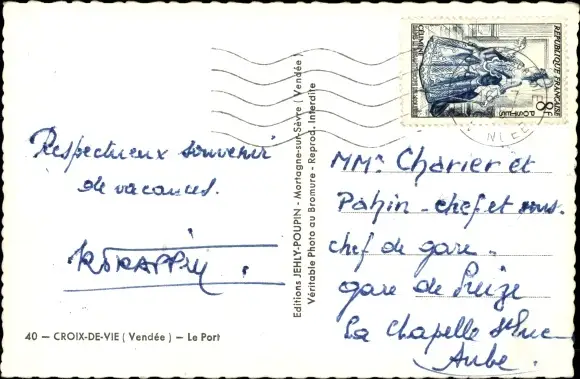 Respectueux souvenir
de vacances.
40 — CROIX-DE-VIE ( Vendée ) — Le Port
Editions JEHLY-POUPIN - Mortagne-sur-Sèvre ( Vendée )
Véritable Photo au Bromure - Reprod. Interdite
REPUBLIQUE FRANÇAISE
8F
POSTES
MMrs Charier et
Pahin - chef et sous.
chef de gare.
gare de Preize
La Chapelle St Luc
Aube.